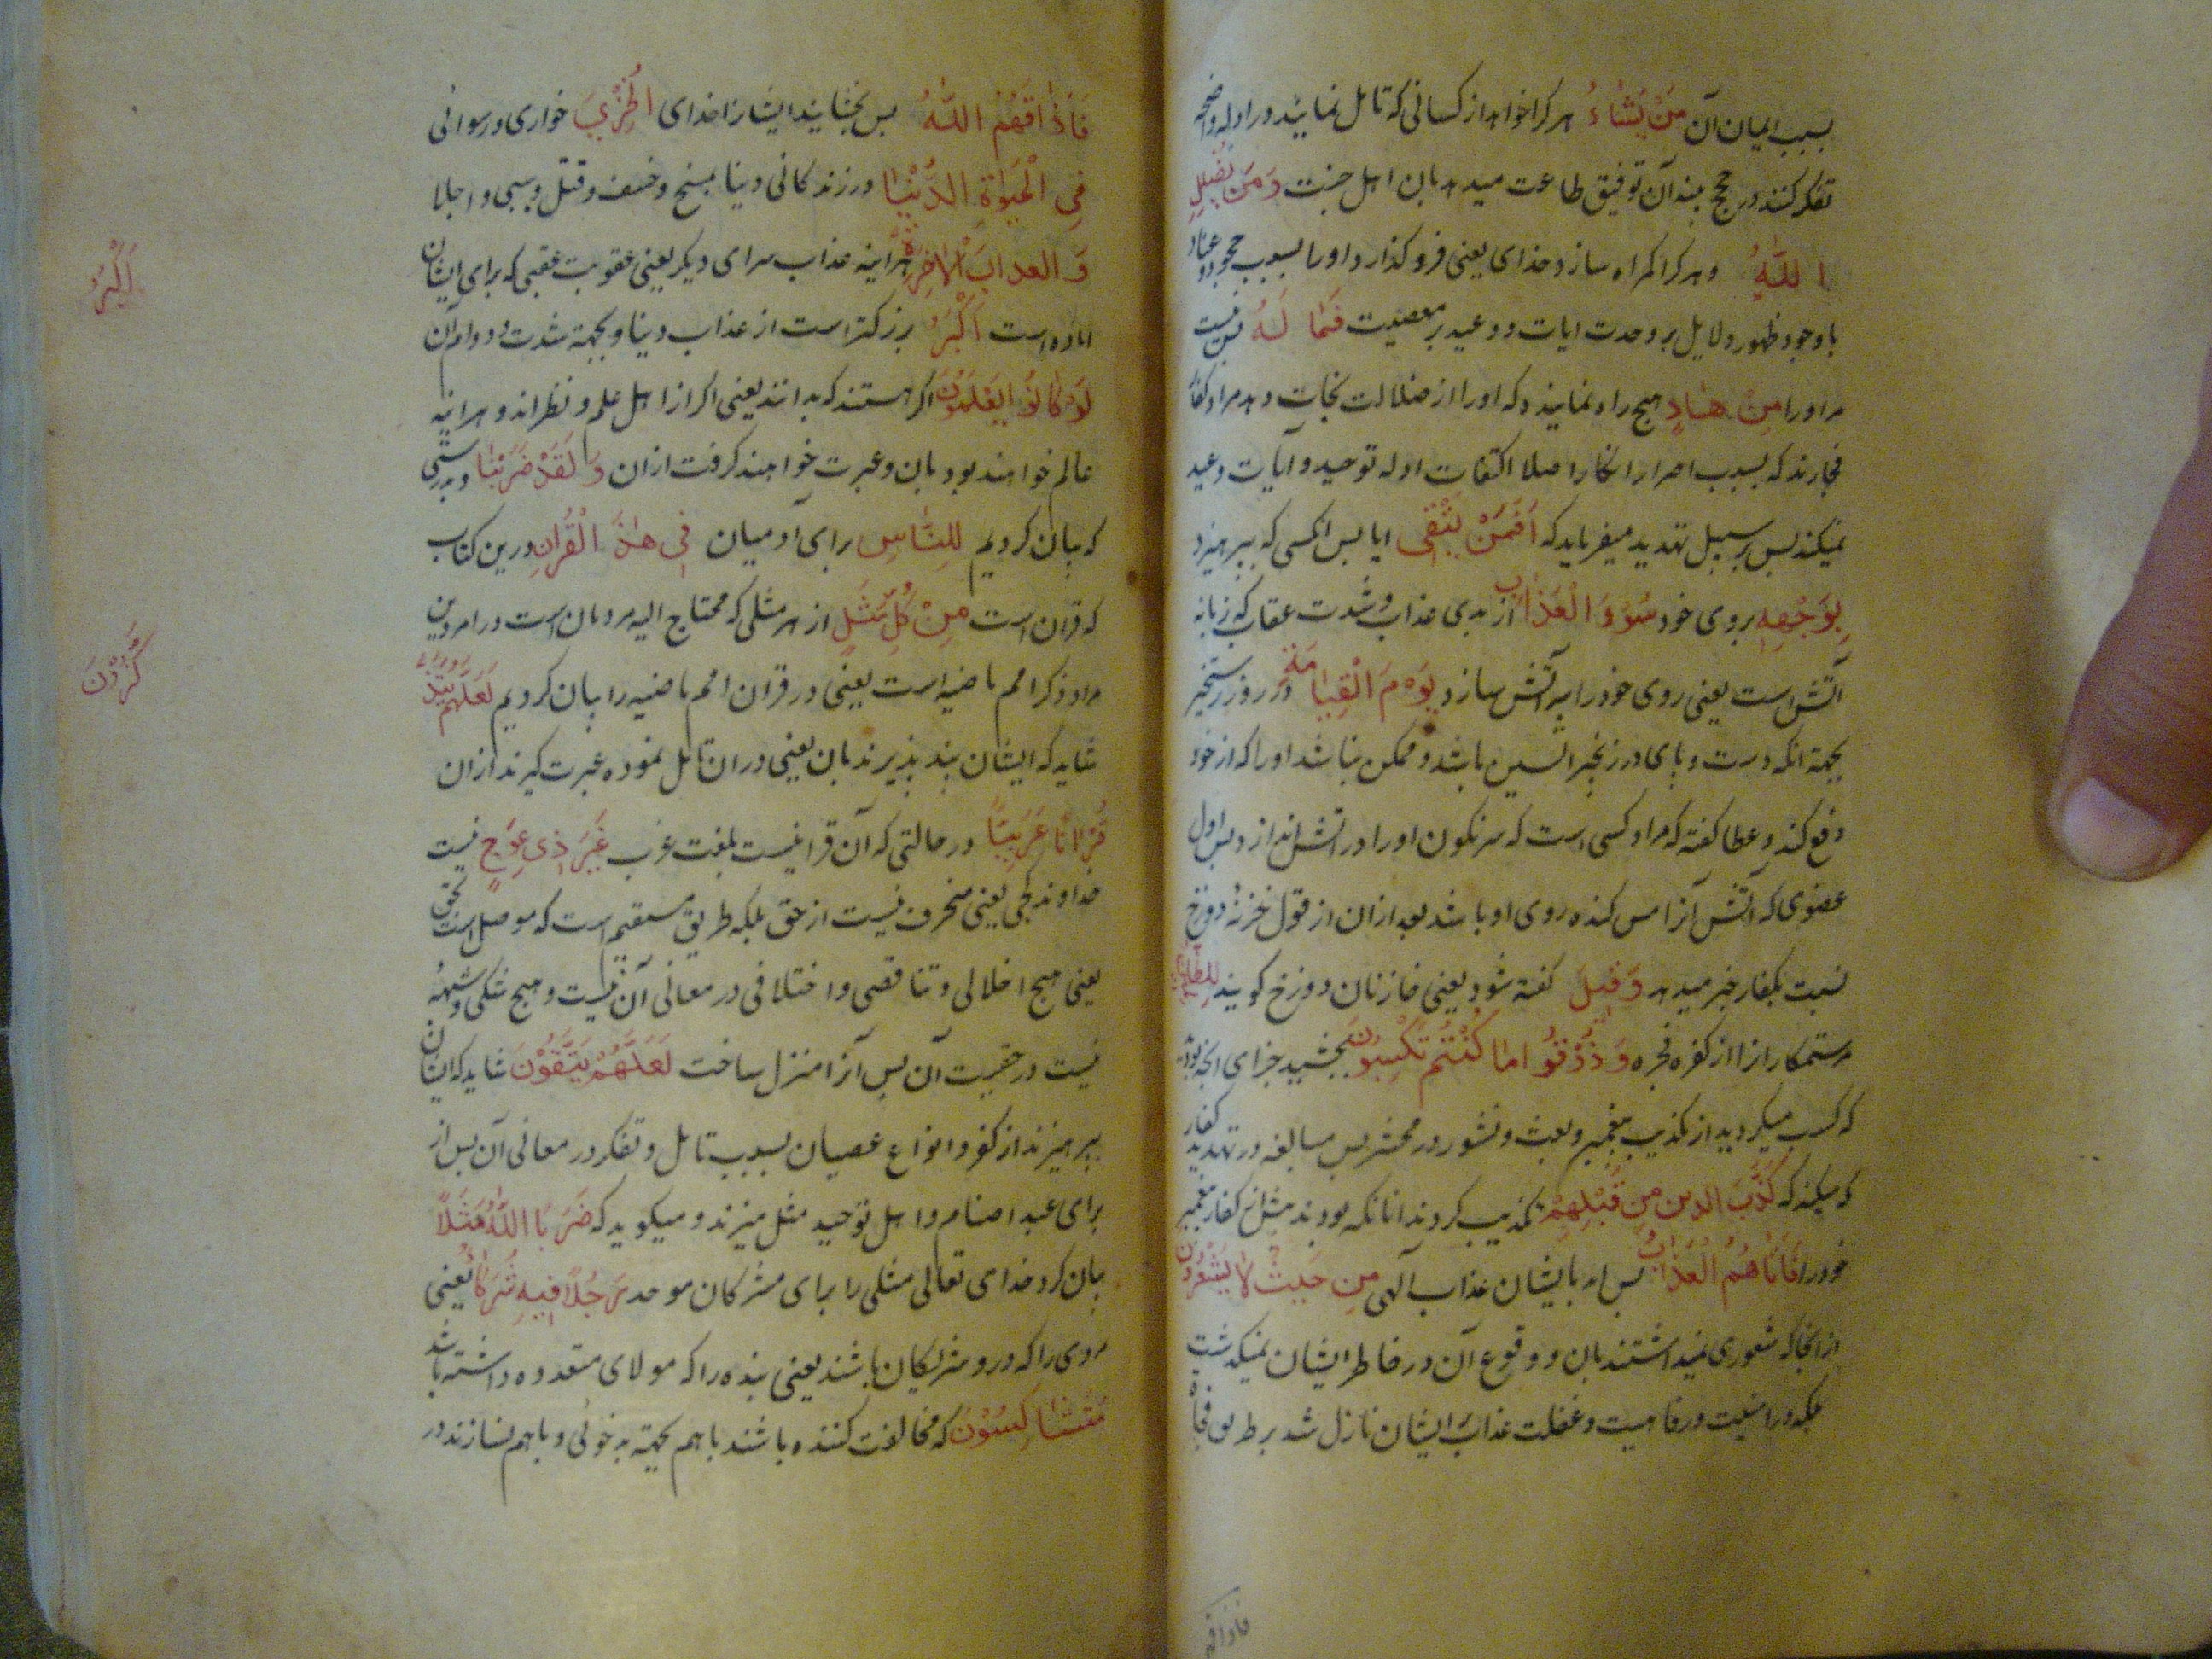 بسبب ایمان آن مَنْ یَشَاءُ هر کرا خواهد از کسانی که تامل نمایند در ادله واضحه
تفکر کنند در حجج بینه آن توفیق طاعت میدهد بان اهل جنت وَمَن یُضْلِلِ
اللَّهُ و هر کرا کمراه سازد خدای یعنی فرو کذارد او را بسبب جحود و عناد
با وجود ظهور دلایل بر وحدت ایات و وعید بر معصیت فَمَا لَهُ پس نیست
مر او را مِنْ هَادٍ هیچ راه نماینده که او را از ضلالت نجات دهد مراد کفار
فجارند که بسبب اصرار انکار اصلا التفات ادله توحید و آیات وعید
نمیکنند پس بر سبیل تهدید میفرماید که أَفَمَنْ یَتَّقِی ایا پس انکسی که بپرهیزد
بِوَجْهِهِ بروی خود سُوءَ الْعَذَابِ از بدی عذاب و شدت عقاب که زبانه
آتش است یعنی روی خود را به آتش سازد یَوْمَ الْقِیَامَةِ در روز رستخیز
بجهة انکه دست و پای در زنجیر اتشین باشد و ممکن نباشد او را که از خود
دفع کند و عطا کفته که مراد کسی است که سرنکون او را در اتش اندازد پس اول
عضوی که آتش آنرا مس کند روی او باشد بعد از ان از قول خزنهٔ دوزخ
نسبت بکفار خبر میدهد وَقِیلَ کفته شود یعنی خازنان دوزخ کویند لِلظَّالِمِینَ
مر ستمکاران را از کفره فجره وَذُوقُوا مَا كُنْتُمْ تَكْسِبُونَ بچشید جزای انچه بودید
که کسب میکردید از تکذیب پیغمبر و بعث و نشور در محشر پس مبالغه در تهدید کفار
که میکند که کَذَّبَ الذین مِن قَبْلِهِمْ تکذیب کردند انانکه بودند پیش از کفار پیغمبر
خود را فَأَتَاهُمُ الْعَذَابُ پس امد بایشان عذاب آلهی مِن حَیْثُ لَا یَشْعُرُونَ
از انجا که شعوری نمیداشتند بان و وقوع آن در خاطر ایشان نمیکذشت
بلکه در امنیت و رفاهیت و غفلت عذاب بر ایشان نازل شد بر طریق فجأة
فاذاقهم
فَأَذَاقَهُمُ اللَّهُ پس بچشانید ایشانرا خدای الْخِزْیَ خواری و رسوائی
فِی الْحَیَوٰةِ الدُّنْیَا در زندکانی دنیا بمسخ و خسف و قتل و سبی و اجلا
وَالعَذَابُ الْآخِرَةِ هر اینه عذاب سرای دیکر یعنی عقوبت عقبی که برای ایشان
اماده است أَكْبَرُ بزرکتر است از عذاب دنیا و بجهة شدت و دوام آن
أَكْبَرُ
لَوْ كَانُوا یَعْلَمُونَ اکر هستند که بدانند یعنی اکر از اهل علم و نظراند و هر اینه
عالم خواهند بود بان و عبرت خواهند کرفت از ان وَلَقَدْ ضَرَبْنَا و بدرستی
که بیان کردیم لِلنَّاسِ برای آدمیان فِی هٰذَا الْقُرْاٰنِ درین کتاب
که قران است مِنْ كُلِّ مَثَلٍ از هر مثلی که محتاج الیه مردمان است در امر دین
مراد ذکر امم ماضیه است یعنی در قران امم ماضیه را بیان کردیم لَعَلَّهُمْ یَتَذَ
كَّرُونَ
شاید که ایشان پند پذیرند بان یعنی در ان تامل نموده عبرت کیرند از ان
قُرْاٰنًا عَرَبِیًّا در حالتی که آن قرانیست بلغت عرب غَیْرَ ذِی عِوَجٍ نیست
خداوند کجی یعنی منحرف نیست از حق بلکه طریق مستقیم است که موصل است بحق
یعنی هیچ اخلالی و تناقضی و اختلافی در معانی آن نیست و هیچ شکی و شبههٔ
نیست در حقیت آن پس آنرا منزل ساخت لَعَلَّهُمْ یَتَّقُونَ شاید که ایشان
بپرهیزند از کفر و انواع عصیان بسبب تامل و تفکر در معانی آن پس از
برای عبد اصنام و اهل توحید مثل میزند و میکوید که ضَرَبَ اللَّهُ مَثَلًا
بیان کرد خدای تعالی مثلی را برای مشرکان موحد رَجُلًا فِیهِ شُرَكَاءُ یعنی
مردی را که در و شریکان باشند یعنی بنده را که مولای متعدده داشته باشد
مُتَشَاكِسُونَ که مخالفت کننده باشند با هم بجهة بدخوئی و با هم نسازند در